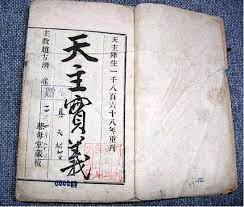 天主降生一千八百六十八年重刊
天主實義
主教趙方濟准
慈母堂藏板